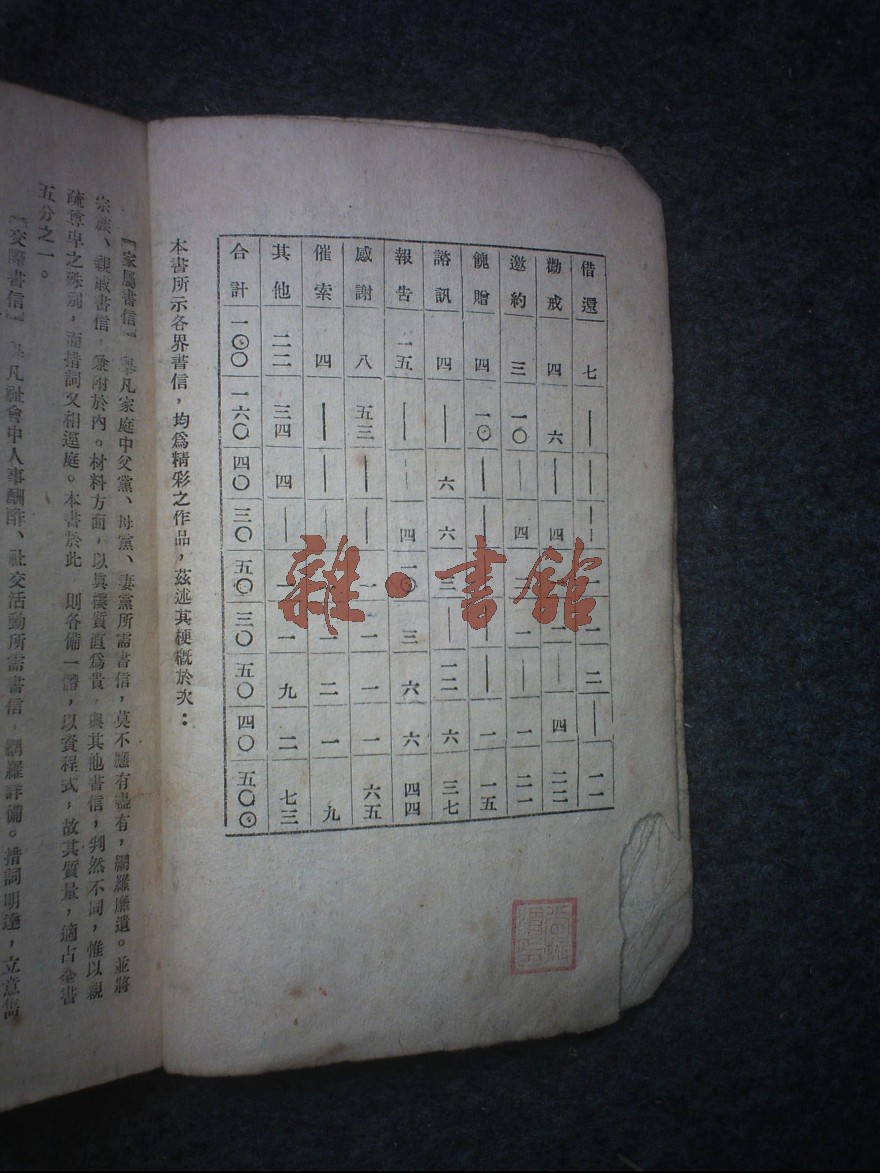 借還 七 — — — 一 一 二 — 一一
勸戒 四 六 — 四 二 二 — 四 二二
邀約 三 一〇 — 四 二 一 — 一 二一
餽贈 四 一〇 — — — — — 一 一五
諮訊 四 — 六 六 三 — 一二 六 三七
報告 一五 — — 四 一〇 三 六 六 四四
感謝 八 五三 — — 一 一 一 一 六五
催索 四 — — — 一 一 二 一 九
其他 二二 三四 四 — 一 一 九 二 七三
合計 一〇〇 一六〇 四〇 三〇 五〇 三〇 五〇 四〇 五〇〇
本書所示各界書信，均爲精彩之作品，茲述其梗概於次：
『家屬書信』 舉凡家庭中父黨、母黨、妻黨所需書信，莫不應有盡有，網羅靡遺。並將
宗族、親戚書信，兼附於內。材料方面，以眞樸質直爲貴，與其他書信，判然不同，惟以親
疏尊卑之殊別，而措詞又相逕庭。本書於此 則各備一體，以資程式，故其質量，適占全書
五分之一。
『交際書信』 舉凡社會中人事酬酢、社交活動所需書信，網羅詳備。措詞明達，立意雋
雜·書館